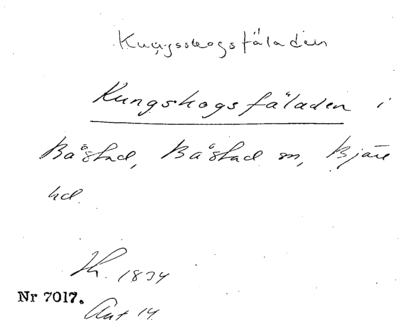 Kungsskogsfäladen
Kungskogsfäladen i
Båstad, Båstad sn, Bjäre
hd.
Th. 1834
Nr 7017.
Akt 14.